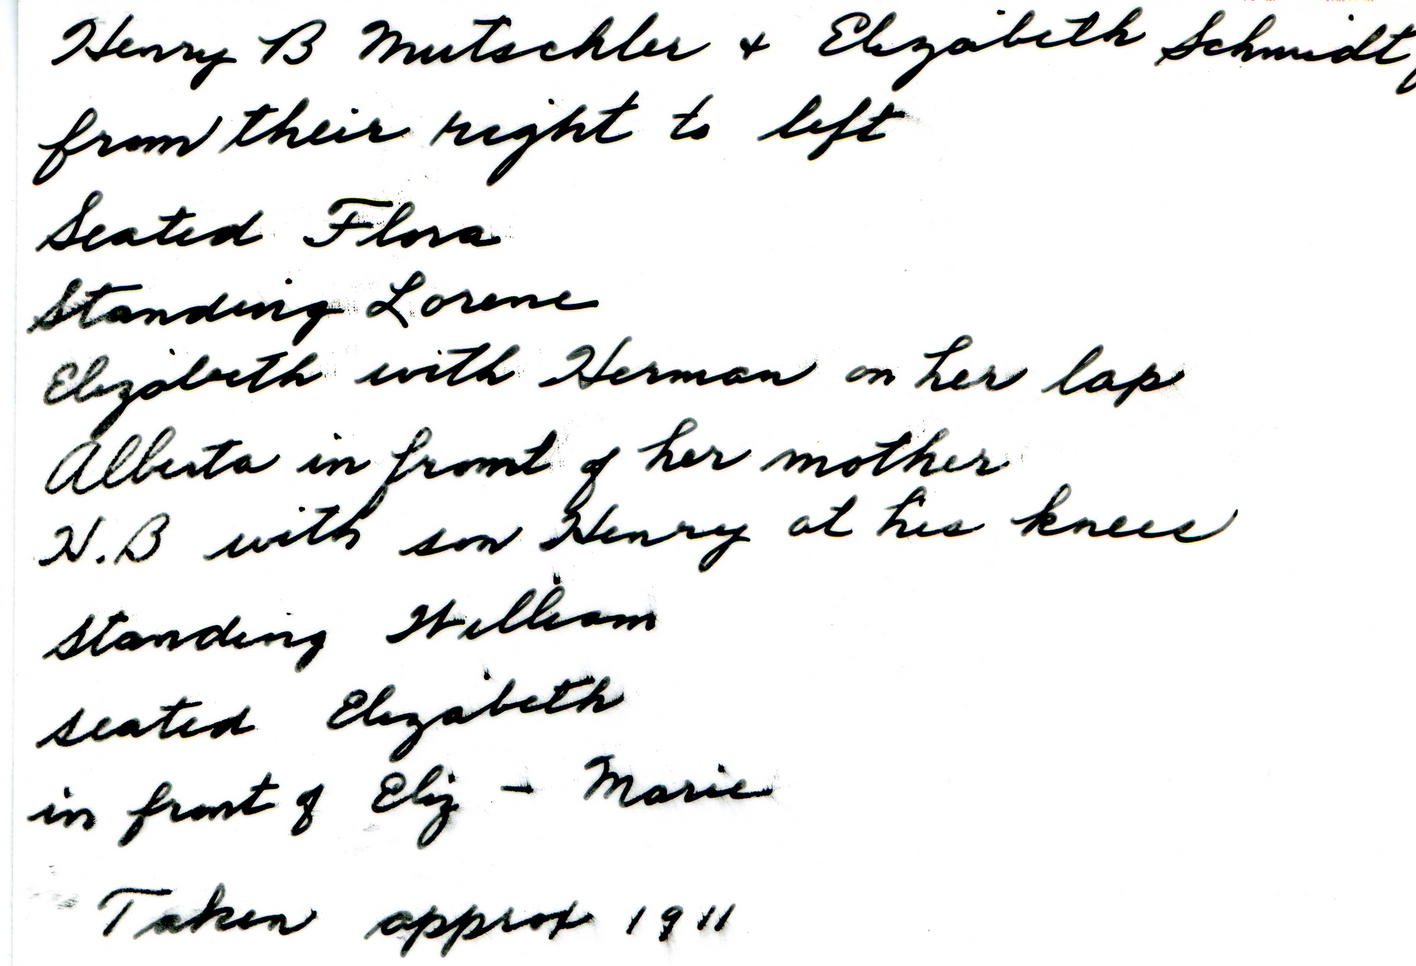 Henry B Mutschler + Elizabeth Schmidt
from their right to left
Seated Flora
Standing Lorene
Elizabeth with Herman on her lap
Alberta in front of her mother
H.B with son Henry at his knees
Standing William
seated Elizabeth
in front of Eliz - Marie
Taken approx 1911